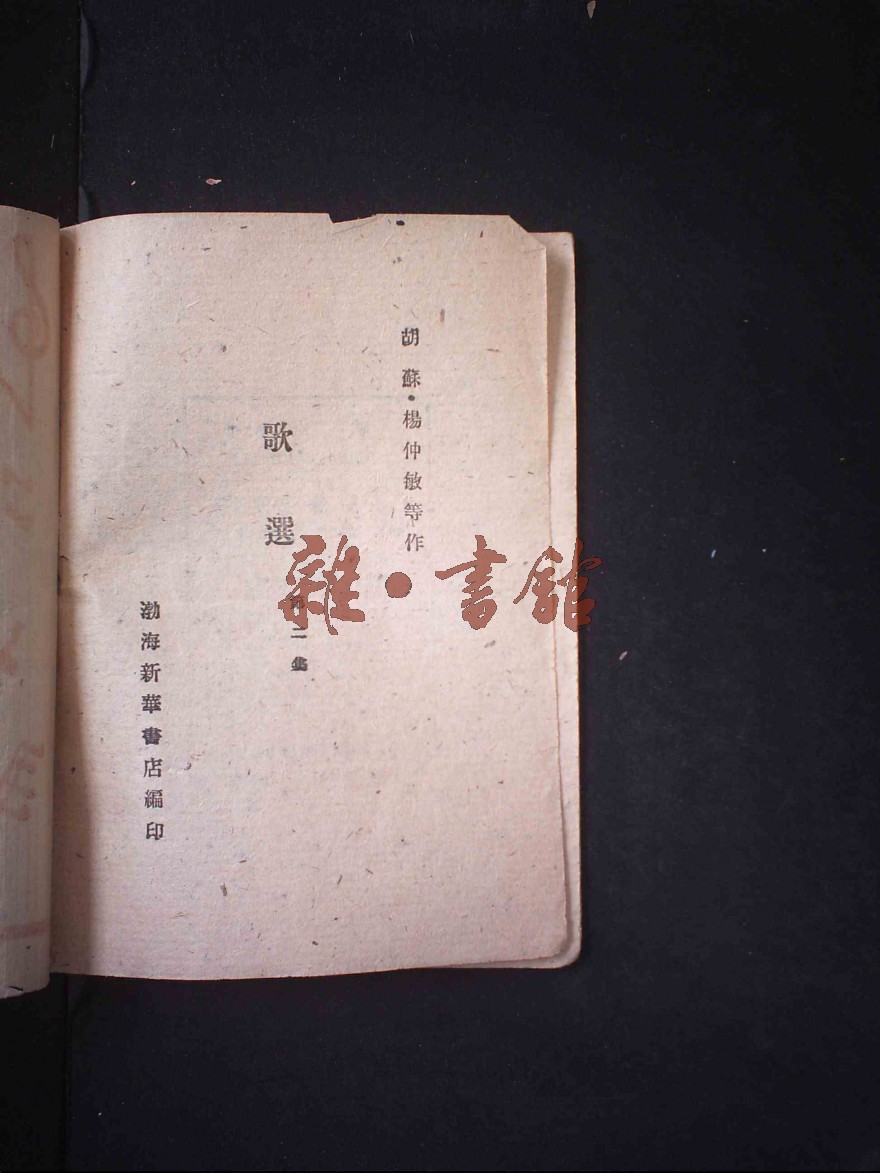 胡蘇·楊仲敏等作
歌選
第二集
渤海新華書店編印
雜·書館